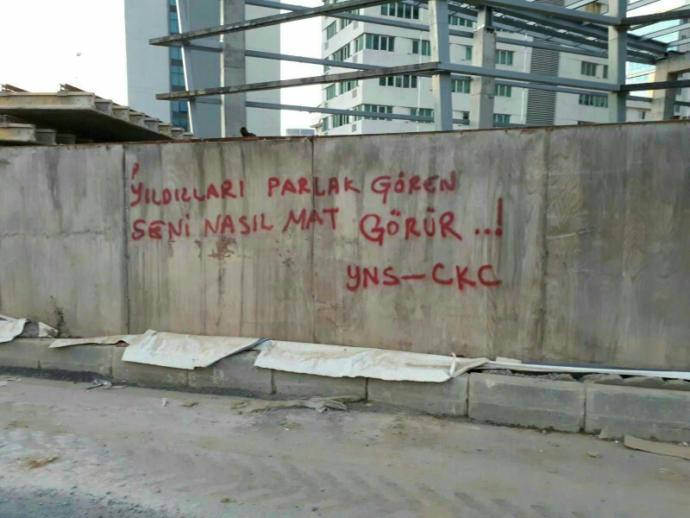 YILDIZLARI PARLAK GÖREN
SENİ NASIL MAT GÖRÜR..!
YNS-CKC